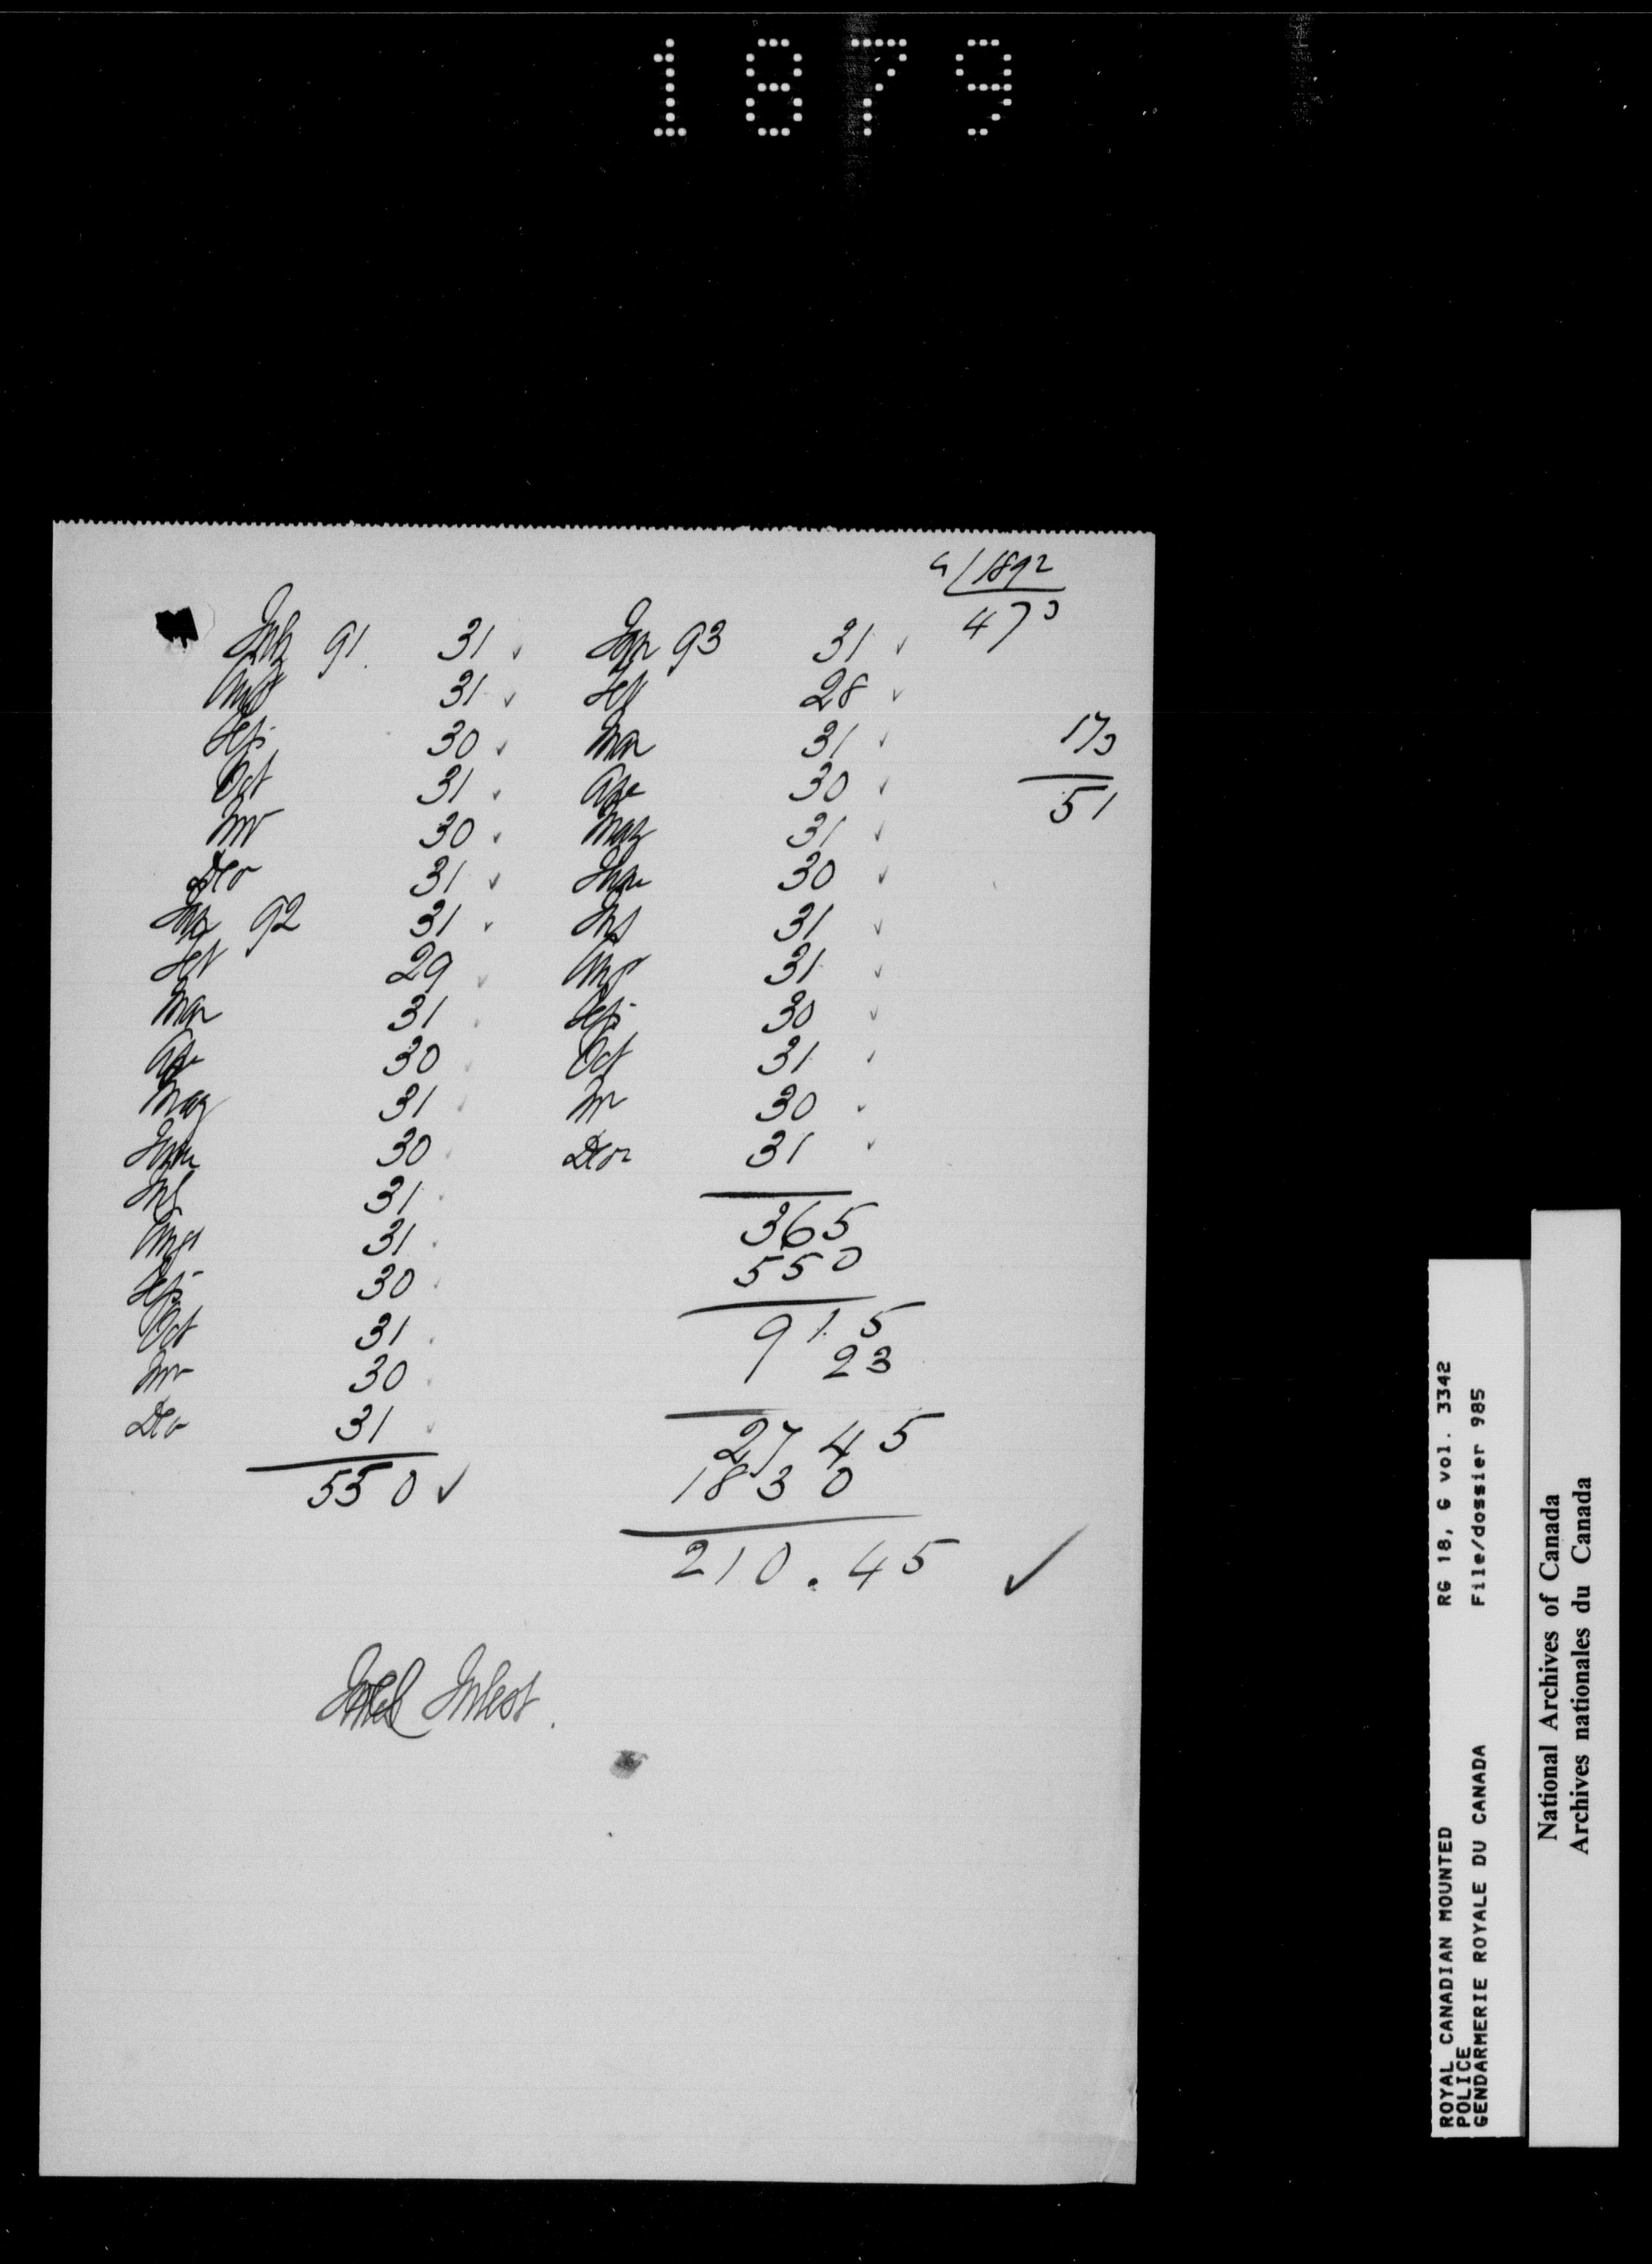 1879
4/1892
473
July 91 31 ✓ Jan 93 31 ✓
Aug 31 ✓ Feb 28 ✓
Sep 30 ✓ Mar 31 ✓ 173
Oct 31 ✓ Apr 30 ✓ 51
Nov 30 ✓ May 31 ✓
Dec 31 ✓ June 30 ✓
Jan 92 31 ✓ Jul 31 ✓
Feb 29 ✓ Aug 31 ✓
Mar 31 ✓ Sep 30 ✓
Apr 30 ✓ Oct 31 ✓
May 31 ✓ Nov 30 ✓
June 30 ✓ Dec 31 ✓
Jul 31 ✓ 365
Aug 31 ✓ 550
Sep 30 ✓ 915
Oct 31 ✓ 23
Nov 30 ✓
Dec 31 ✓ 2745
550 ✓ 1830
210.45 ✓
ROYAL CANADIAN MOUNTED RG 18, G vol. 3342
POLICE File/dossier 985
GENDARMERIE ROYALE DU CANADA
National Archives of Canada
Archives nationales du Canada